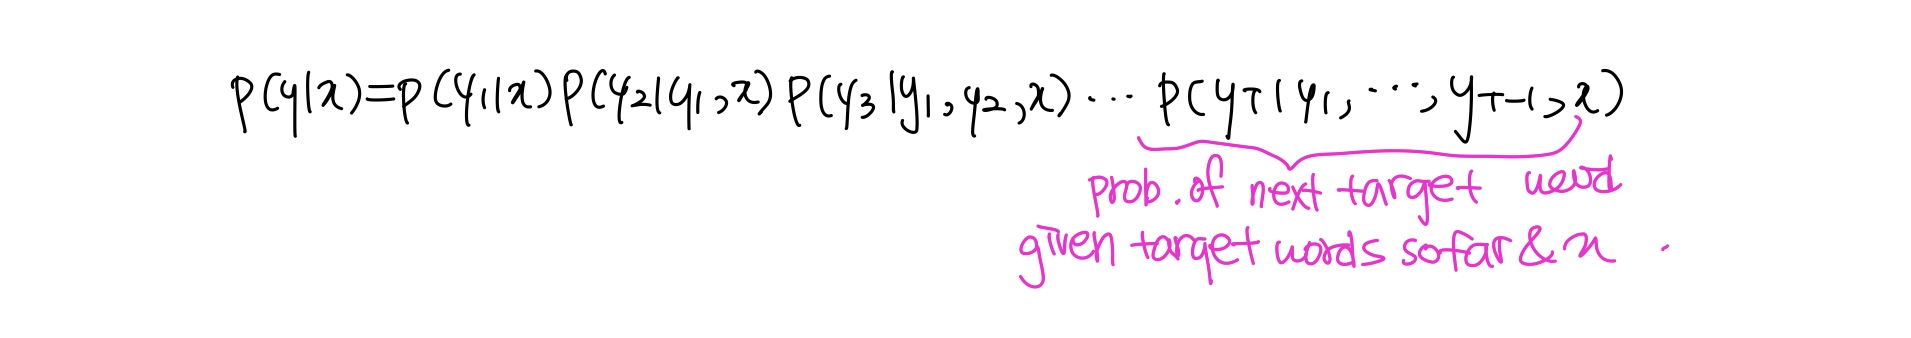 P(y|x)=P(y₁|x)P(y₂|y₁,x)P(y₃|y₁,y₂,x)⋯P(y_T|y₁,⋯,y_{T-1},x)
prob. of next target word
given target words so far & x .